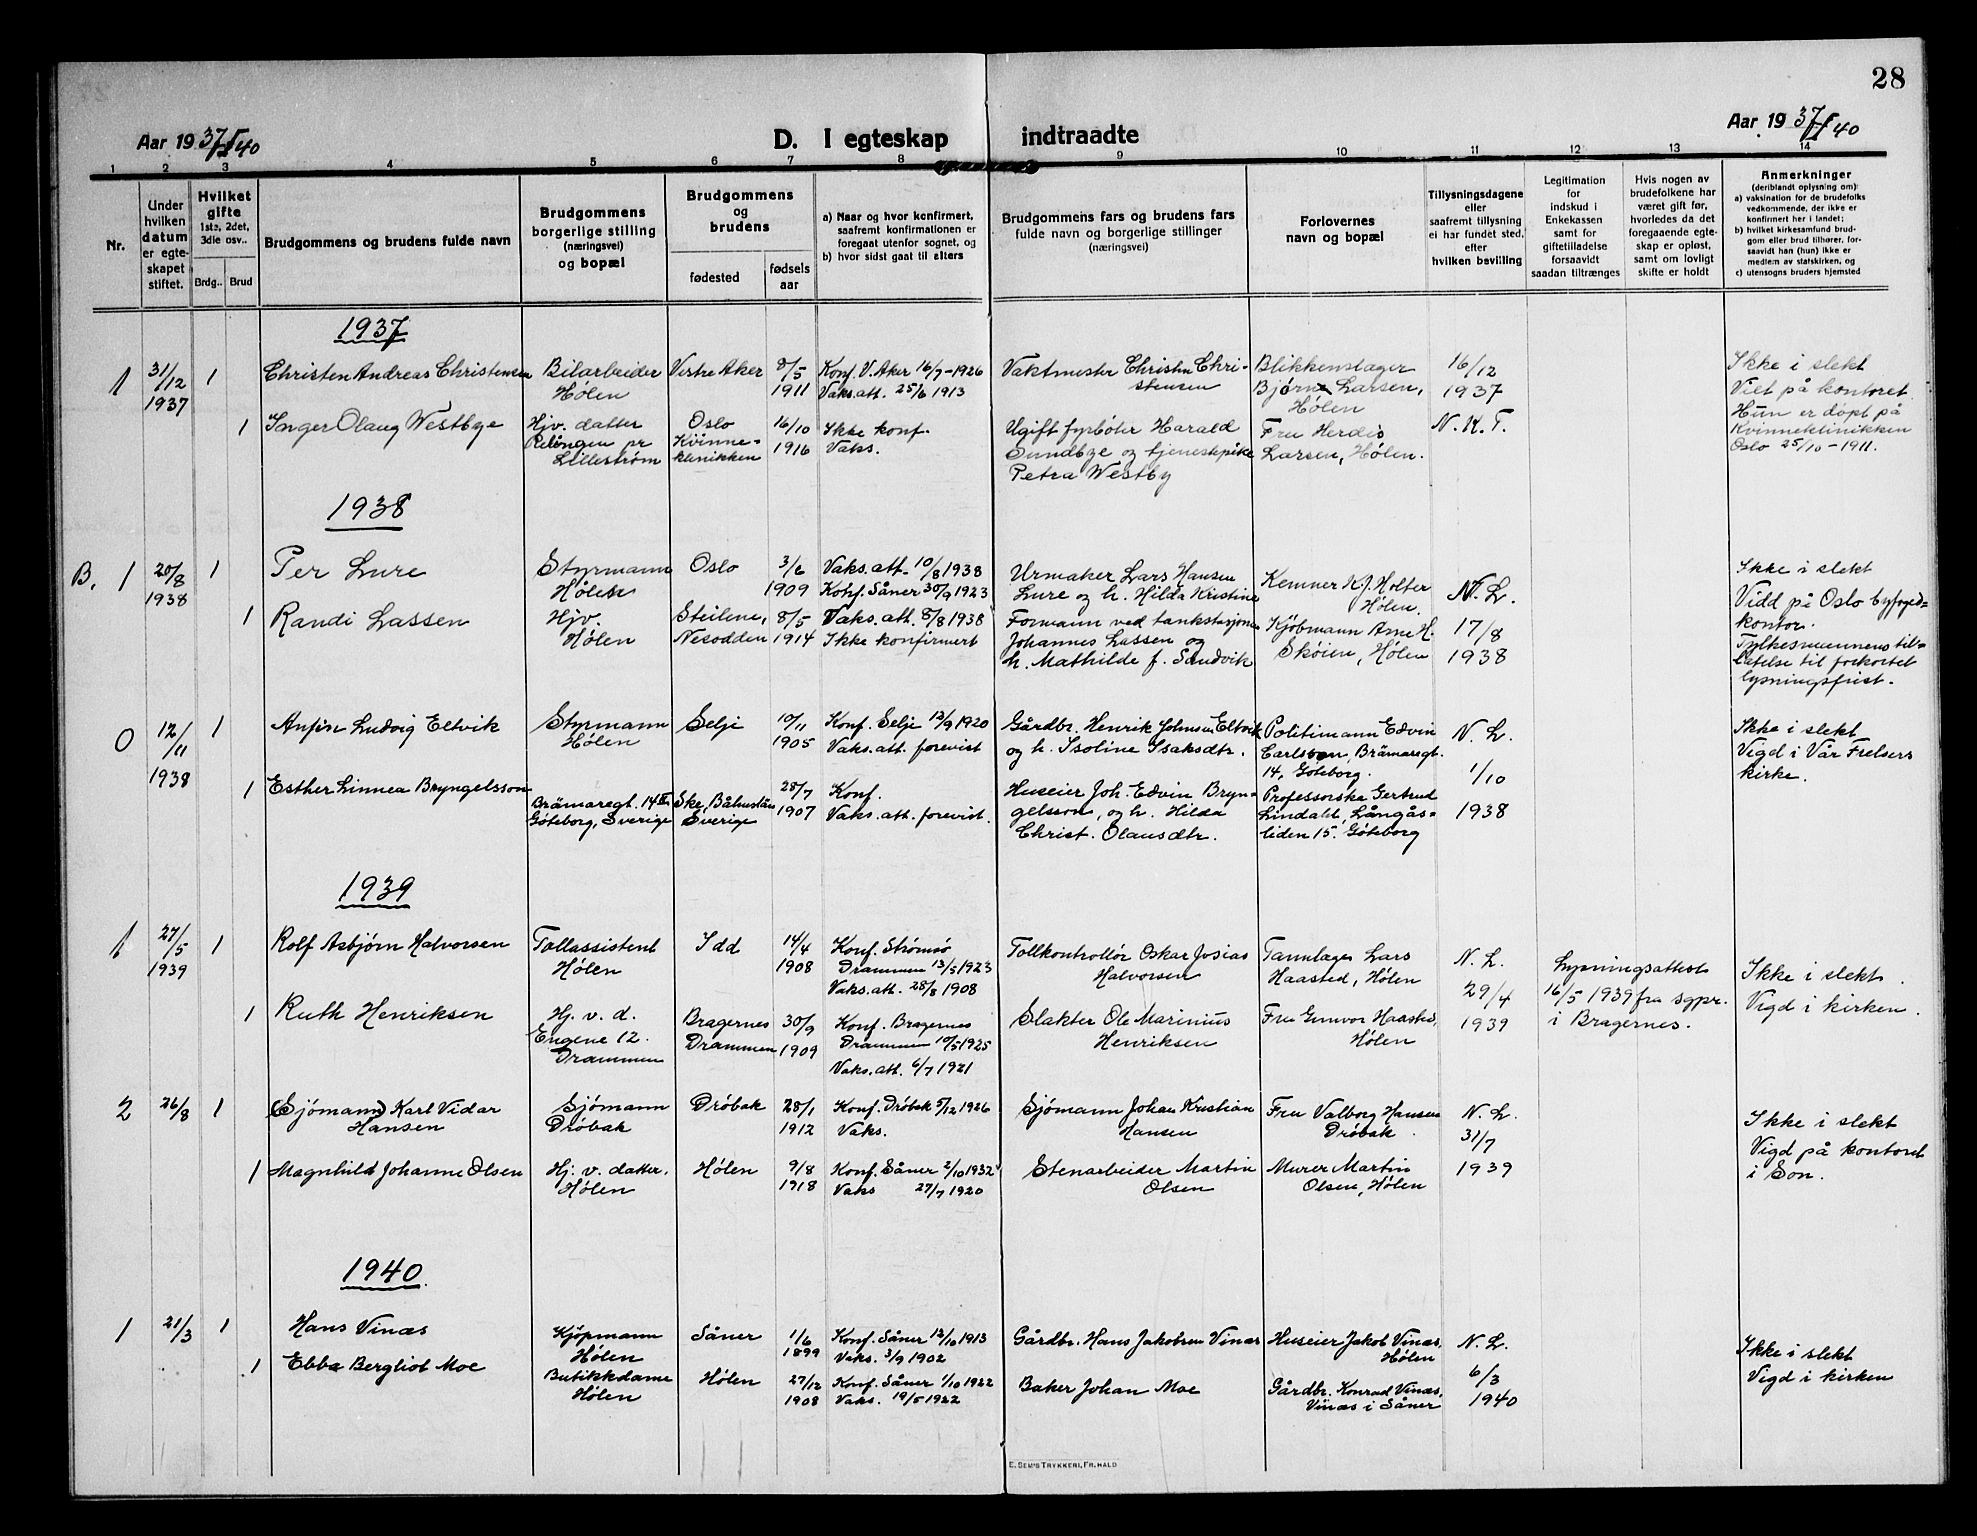 28
Aar 1937/40
D. I egteskap indtraadte
Aar 1937/40
1 2 3 4 5 6 7 8 9 10 11 12 13 14
Nr.
Under hvilken datum er egteskapet stiftet.
Hvilket gifte 1ste, 2det, 3die osv..
Brdg.. Brud
Brudgommens og brudens fulde navn
Brudgommens borgerlige stilling (næringsvei) og bopæl
Brudgommens og brudens
fødested
fødselsaar
a) Naar og hvor konfirmert, saafremt konfirmationen er foregaat utenfor sognet, og
b) hvor sidst gaat til alters
Brudgommens fars og brudens fars fulde navn og borgerlige stillinger (næringsvei)
Forlovernes navn og bopæl
Tillysningsdagene eller saafremt tillysning ei har fundet sted, efter hvilken bevilling
Legitimation for indskud i Enkekassen samt for giftetilladelse forsaavidt saadan tiltrænges
Hvis nogen av brudefolkene har været gift før, hvorledes da det foregaaende egteskap er opløst, samt om lovligt skifte er holdt
Anmerkninger
(deriblandt oplysning om)
a) vaksination for de brudefolks vedkommende, der ikke er konfirmert her i landet;
b) hvilket kirkesamfund brudgom eller brud tilhører, forsaavidt han (hun) ikke er medlem av statskirken, og
c) utensogns bruders hjemsted
1937
1 31/12 1937 1
Christen Andreas Christensen
Bilarbeider
Hølen
Vestre Aker
8/5
1911
Konf. V. Aker 16/7-1926
Vaks.att. 25/6 1913
Vaktmester Christin Christensen
Blikkenslager
Bjørn Larsen,
Hølen
16/12
1937
N. K. T.
Ikke i slekt
Viet på kontoret
Hun er døpt på
Kvinneklinikken
Oslo 25/10-1911.
1
Inger Olaug Westbye
Hjv. datter
Relingen pr
Lillestrøm
Oslo
Kvinneklinikken
16/10
1916
Ikke konf.
Vaks.
Ugift fyrbøter Harald
Sundbye og tjenestepike
Petra Westby
Fru Herdis
Larsen, Hølen.
1938
B. 1 20/8 1938 1
Per Lure
Styrmann
Hølen
Oslo
3/6
1909
Vaks.att. 10/8 1938
Konf. Såner 30/9 1923
Urmaker Lars Hansen
Lure og h. Hilda Kristine
Kemner K. J. Holter
Hølen.
N. L.
17/8
1938
Ikke i slekt
Vidd på Oslo byfogedkontor.
Fylkesmannens tillatelse til forkortet
lysningsfrist.
1
Randi Lassen
Hjv.
Hølen
Steilene,
Nesodden
8/5
1914
Vaks.att. 8/8 1938
Ikke konfirmert
Formann ved tankstasjonen
Johannes Lassen og
h. Mathilde f. Sandvik
Kjøbmann Arne H.
Skøien, Hølen
0 12/11 1938 1
Anfin Ludvig Eltvik
Styrmann
Hølen
Selje
10/11
1905
Konf. Selje 13/9 1920
Vaks.att. forevist
Gårdbr. Henrik Johnsen Eltvik
og h. Isoline Isaksdtr.
Politimann Edvin
Carlson, Brämaregt.
14, Göteborg.
N. L.
1/10
1938
Ikke i slekt
Vigd i Vår Frelsers
kirke.
1
Esther Linnea Bryngelsson
Brämaregt. 14
Göteborg, Sverige
Ske, Båhuslän
Sverige
28/7
1907
Konf.
Vaks.att. forevist.
Huseier Joh. Edvin Bryngelsson, og h. Hilda
Christ. Olausdtr.
Professorska Gertrud
Lindahl, Långåsliden 15. Göteborg
1939
1 27/5 1939 1
Rolf Asbjørn Halvorsen
Tollassistent
Hølen
Idd
14/4
1908
Konf. Strømsø
Drammen 13/5 1923
Vaks.att. 28/8 1908
Tollkontrollør Oskar Josias
Halvorsen
Tannlæge Lars
Haasted, Hølen
N. L.
29/4
1939
Lysningsattest
16/5 1939 fra sgpr.
i Bragernes.
Ikke i slekt.
Vigd i kirken.
1
Ruth Henriksen
Hj. v. d.
Engene 12.
Drammen
Bragernes
Drammen
30/9
1909
Konf. Bragernes
Drammen 10/5 1925
Vaks.att. 6/7 1921
Slakter Ole Marinius
Henriksen
Fru Gunvor Haasted,
Hølen
2 26/8 1
(Sjømann) Karl Vidar
Hansen
Sjømann
Drøbak
Drøbak
28/1
1912
Konf. Drøbak 5/12 1926
Vaks.
Sjømann Johan Kristian
Hansen
Fru Valborg Hansen
Drøbak.
N. L.
31/7
1939
Ikke i slekt
Vigd på kontoret
i Son.
1
Magnhild Johanne Olsen
Hj. v. datter.
Hølen
Hølen
9/8
1918
Konf. Såner 2/10 1932
Vaks 27/7 1920
Stenarbeider Martin
Olsen
Murer Martin
Olsen, Hølen
1940
1 21/3 1
Hans Vinæs
Kjøpmann
Hølen
Såner
1/6
1899
Konf. Såner 12/10 1913
Vaks. 3/9 1902
Gårdbr. Hans Jakobsen Vinæs
Huseier Jakob Vinæs,
Hølen
N. L.
6/3
1940
Ikke i slekt
Vigd i kirken
1
Ebba Bergliot Moe
Butikkdame
Hølen
Hølen
27/12
1908
Konf. Såner 1/10 1922
Vaks. 19/5 1922
Baker Johan Moe
Gårdbr. Konrad Vinæs,
Vinæs i Såner
E. SEM'S TRYKKERI, FR.HALD